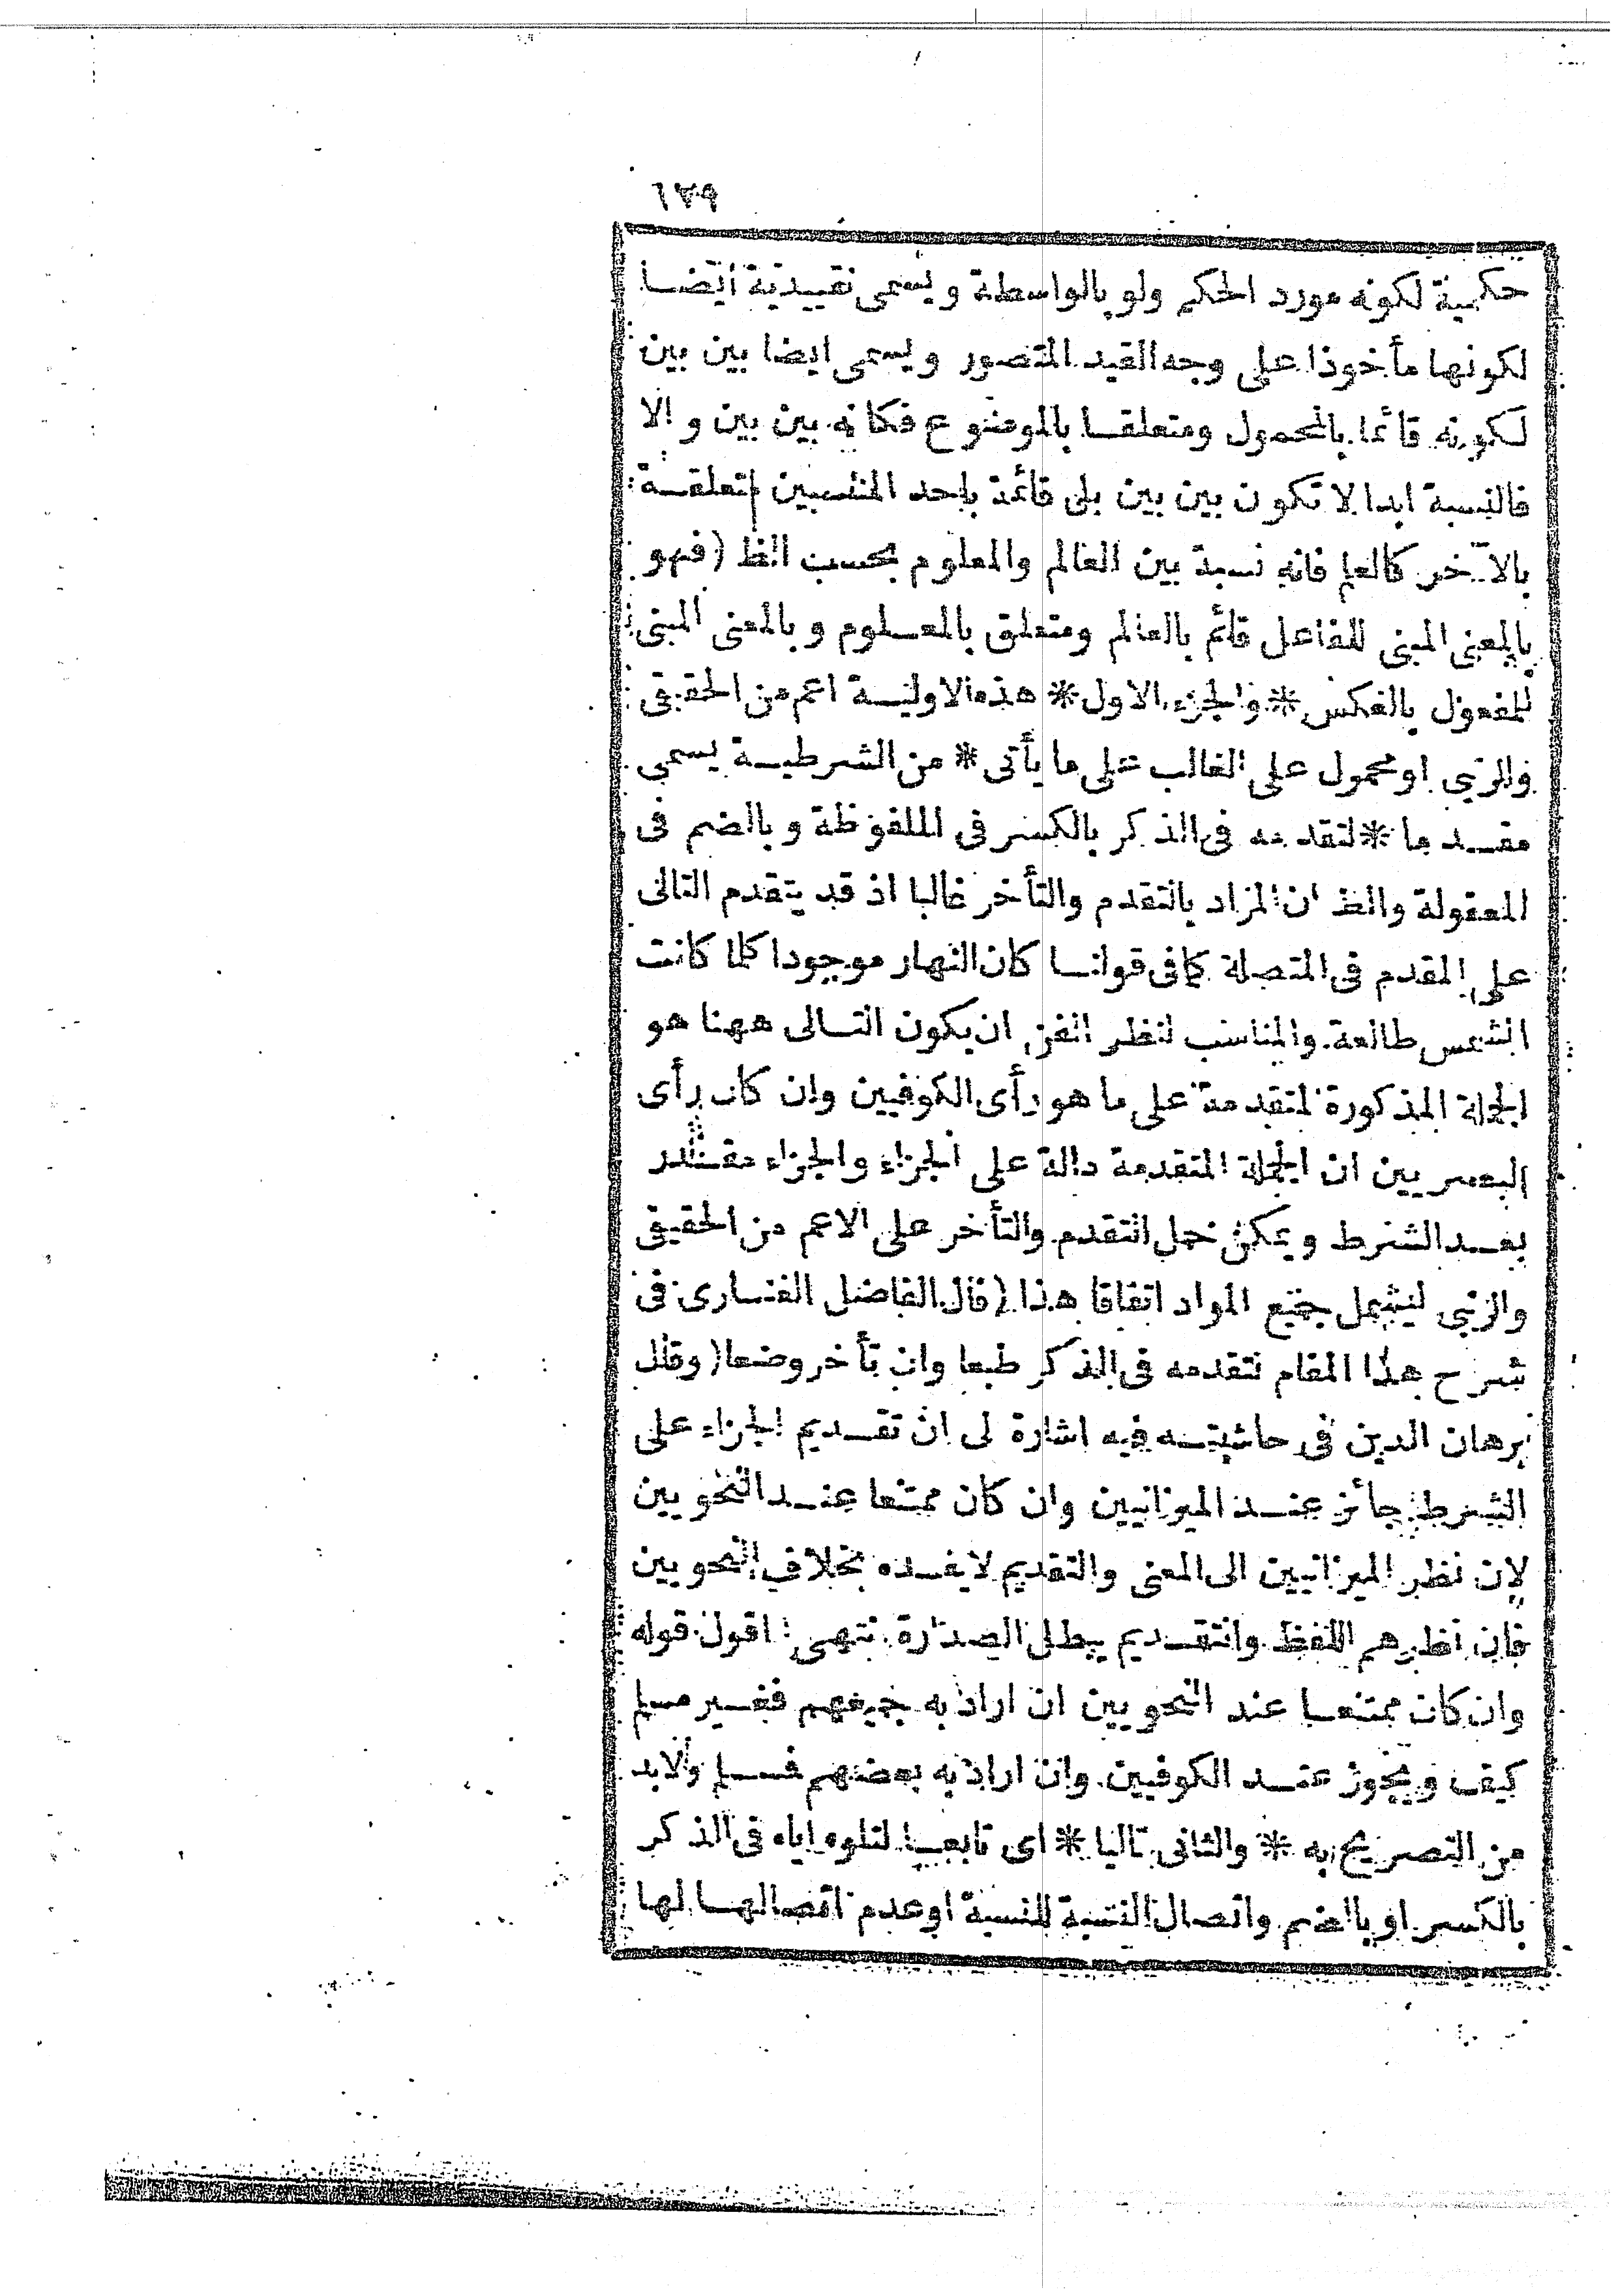 ١٧٩
حكمية لكونه مورد الحكم ولو بالواسطة ويسمى تقييدية ايضا
لكونها مأخوذا على وجه القيد المتصور ويسمى ايضا بين بين
لكونه قائما بالمحمول ومتعلقا بالموضوع فكانه بين بين والا
فالنسبة ابدا لا تكون بين بين بل قائمة باحد المنتسبين متعلقة
بالآخر كالعلم فانه نسبة بين العالم والمعلوم بحسب الظ (فهو
بالمعنى المبنى للفاعل قائم بالعالم ومتعلق بالمعلوم وبالمعنى المبنى
للمفعول بالعكس * والجزء الاول * هذه الاولية اعم من الحقيقى
والرتبى او محمول على الغالب على ما يأتى * من الشرطية يسمى
مقدما * لتقدمه فى الذكر بالكسر فى الملفوظة وبالضم فى
المعقولة والظ ان المراد بالتقدم والتأخر غالبا اذ قد يتقدم التالى
على المقدم فى المتصلة كما فى قولنا كان النهار موجودا كلما كانت
الشمس طالعة والمناسب لنظر الفن ان يكون التالى ههنا هو
الجملة المذكورة المتقدمة على ما هو رأى الكوفيين وان كان رأى
البصريين ان الجملة المتقدمة دالة على الجزاء والجزاء مقدر
بعد الشرط ويمكن حمل التقدم والتأخر على الاعم من الحقيقى
والرتبى ليشمل جميع المواد اتفاقا هذا (قال الفاضل الفنارى فى
شرح هذا المقام لتقدمه فى الذكر طبعا وان تأخر وضعا (وقال
برهان الدين فى حاشيته فيه اشارة الى ان تقديم الجزاء على
الشرط جائز عند الميزانيين وان كان ممتنعا عند النحويين
لان نظر الميزانيين الى المعنى والتقديم لا يفسده بخلاف النحويين
فان نظرهم اللفظ والتقديم يبطل الصدارة انتهى اقول قوله
وان كان ممتنعا عند النحويين ان اراد به جميعهم فغير مسلم
كيف ويجوز عند الكوفيين وان اراد به بعضهم فمسلم ولابد
من التصريح به * والثانى تاليا * اى تابعا لتلوه اياه فى الذكر
بالكسر او بالضم واتصال النسبة للنسبة او عدم اتصالها لها